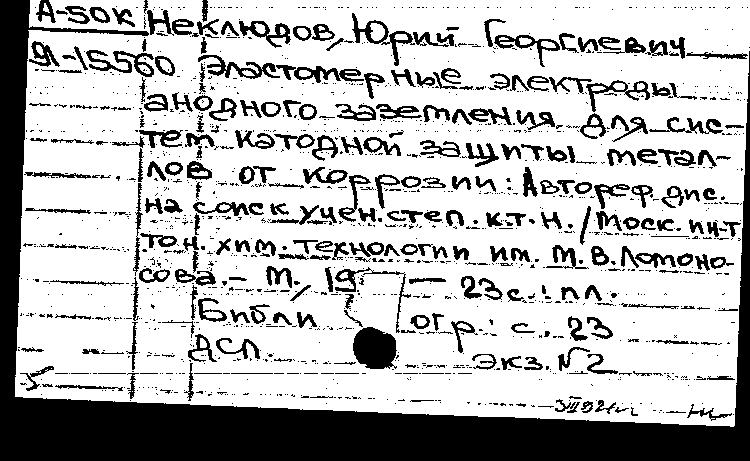 А-50К Неклюдов, Юрий Георгиевич
91-15560 Эластомерные электроды
анодного заземления для сис-
тем катодной защиты метал-
лов от коррозии: Автореф. дис.
на соиск учен. степ. к.т.н. / Моск. ин-т
тон. хим. технологии им. М.В. Ломоно-
сова. - М., 19 — 23 с.: ил.
Библи огр.: с. 23
ДСП. Экз. №2
5